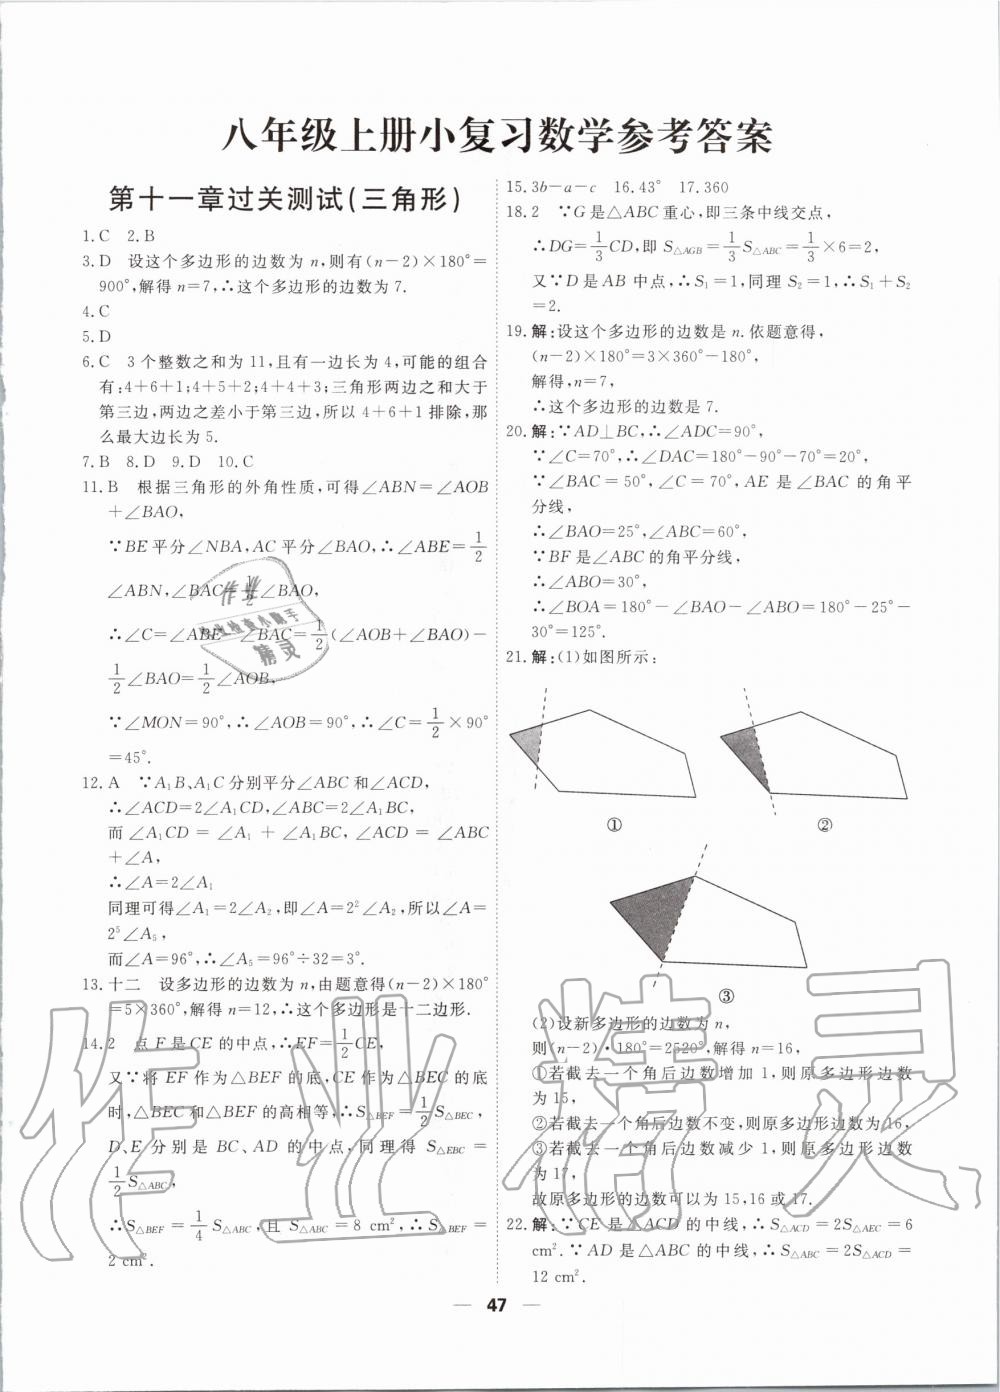 八年级上册小复习数学参考答案
第十一章过关测试(三角形)
1.C 2.B
3.D 设这个多边形的边数为 n,则有(n-2)×180°=
900°,解得 n=7,∴这个多边形的边数为 7.
4.C
5.D
6.C 3 个整数之和为 11,且有一边长为 4,可能的组合
有:4+6+1;4+5+2;4+4+3;三角形两边之和大于
第三边,两边之差小于第三边,所以 4+6+1 排除,那
么最大边长为 5.
7.B 8.D 9.D 10.C
11.B 根据三角形的外角性质,可得∠ABN=∠AOB
+∠BAO,
∵BE 平分∠NBA,AC 平分∠BAO,∴∠ABE=1/2
∠ABN,∠BAC=1/2∠BAO,
∴∠C=∠ABE-∠BAC=1/2(∠AOB+∠BAO)-
1/2∠BAO=1/2∠AOB,
∵∠MON=90°,∴∠AOB=90°,∴∠C=1/2×90°
=45°.
12.A ∵A₁B、A₁C 分别平分∠ABC 和∠ACD,
∴∠ACD=2∠A₁CD,∠ABC=2∠A₁BC,
而∠A₁CD=∠A₁+∠A₁BC,∠ACD=∠ABC
+∠A,
∴∠A=2∠A₁
同理可得∠A₁=2∠A₂,即∠A=2²∠A₂,所以∠A=
2⁵∠A₅,
而∠A=96°,∴∠A₅=96°÷32=3°.
13.十二 设多边形的边数为 n,由题意得(n-2)×180°
=5×360°,解得 n=12,∴这个多边形是十二边形.
14.2 点 F 是 CE 的中点,∴EF=1/2CE,
又∵将 EF 作为△BEF 的底,CE 作为△BEC 的底
时,△BEC 和△BEF 的高相等,∴S△BEF=1/2S△BEC,
D、E 分别是 BC、AD 的中点,同理得 S△EBC=
1/2S△ABC,
∴S△BEF=1/4S△ABC,且 S△ABC=8 cm²,∴S△BEF=
2 cm².
15.3b-a-c 16.43° 17.360
18.2 ∵G 是△ABC 重心,即三条中线交点,
∴DG=1/3CD,即 S△AGB=1/3S△ABC=1/3×6=2,
又∵D 是 AB 中点,∴S₁=1,同理 S₂=1,∴S₁+S₂
=2.
19.解:设这个多边形的边数是 n.依题意得,
(n-2)×180°=3×360°-180°,
解得,n=7,
∴这个多边形的边数是 7.
20.解:∵AD⊥BC,∴∠ADC=90°,
∵∠C=70°,∴∠DAC=180°-90°-70°=20°,
∵∠BAC=50°,∠C=70°,AE 是∠BAC 的角平
分线,
∴∠BAO=25°,∠ABC=60°,
∵BF 是∠ABC 的角平分线,
∴∠ABO=30°,
∴∠BOA=180°-∠BAO-∠ABO=180°-25°-
30°=125°.
21.解:(1)如图所示:
① ②
③
(2)设新多边形的边数为 n,
则(n-2)·180°=2520°,解得 n=16,
①若截去一个角后边数增加 1,则原多边形边数
为 15,
②若截去一个角后边数不变,则原多边形边数为 16,
③若截去一个角后边数减少 1,则原多边形边数
为 17,
故原多边形的边数可以为 15,16 或 17.
22.解:∵CE 是△ACD 的中线,∴S△ACD=2S△AEC=6
cm².∵AD 是△ABC 的中线,∴S△ABC=2S△ACD=
12 cm².
— 47 —
作业精灵
作业
作业检查小助手
精灵